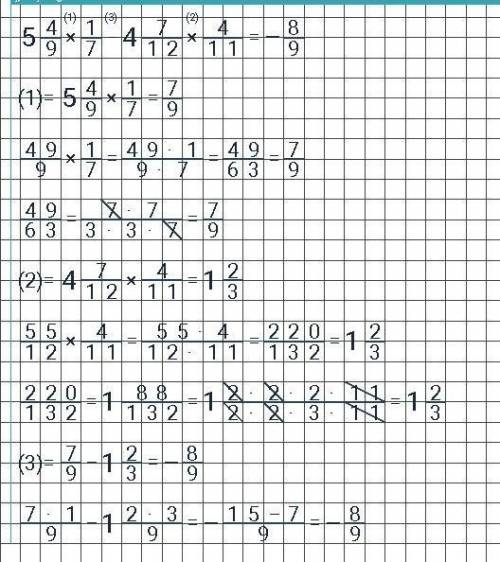 (1) (3) (2)
5 4/9 × 1/7 4 7/12 × 4/11 = - 8/9
(1)= 5 4/9 × 1/7 = 7/9
49/9 × 1/7 = 49 · 1/9 · 7 = 49/63 = 7/9
49/63 = 7 · 7/3 · 3 · 7 = 7/9
(2)= 4 7/12 × 4/11 = 1 2/3
55/12 × 4/11 = 55 · 4/12 · 11 = 220/132 = 1 2/3
220/132 = 1 88/132 = 1 2 · 2 · 2 · 11/2 · 2 · 3 · 11 = 1 2/3
(3)= 7/9 - 1 2/3 = - 8/9
7 · 1/9 - 1 2 · 3/9 = - 15-7/9 = - 8/9